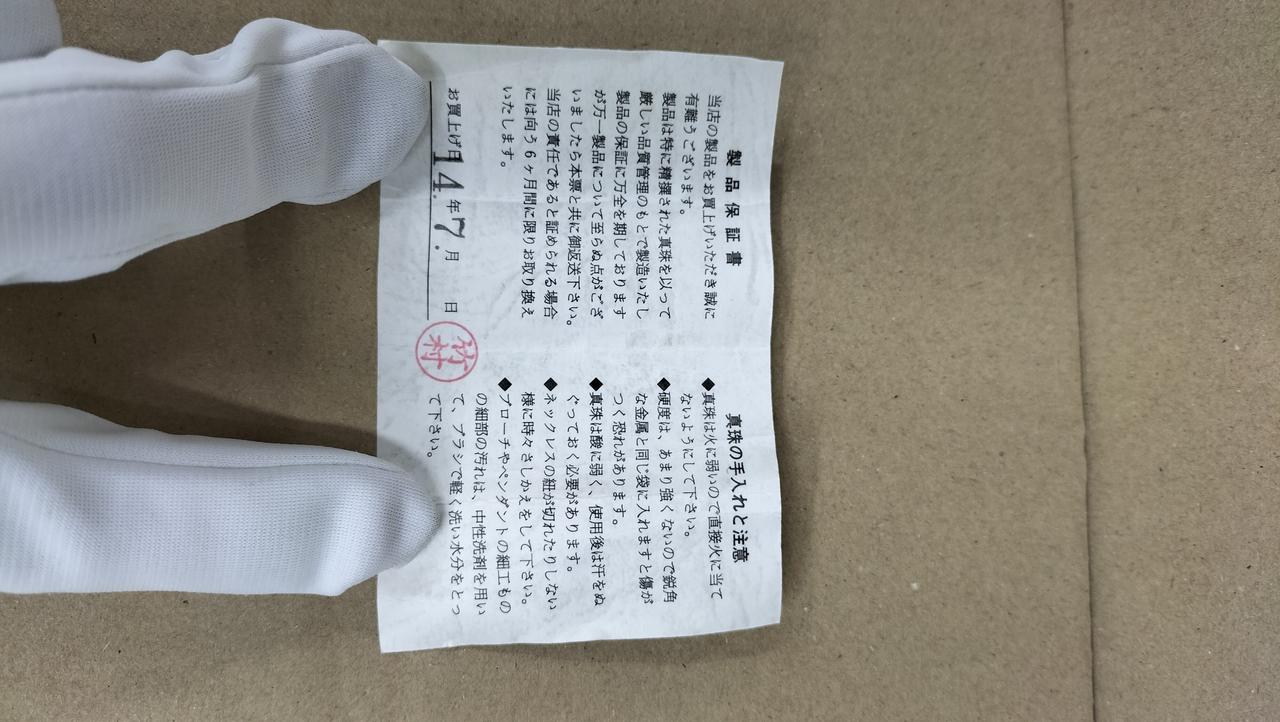 製品保証書
当店の製品をお買上げいただき誠に
有難うございます。
製品は特に精撰された真珠を以って
厳しい品質管理のもとで製造いたし
製品の保証に万全を期しております
が万一製品について至らぬ点がござ
いましたら本票と共に御返送下さい。
当店の責任であると証められる場合
には向う6ヶ月間に限りお取り換え
いたします。
お買上げ日14.年7.月 日
竹村
真珠の手入れと注意
◆真珠は火に弱いので直接火に当て
ないようにして下さい。
◆硬度は、あまり強くないので鋭角
な金属と同じ袋に入れますと傷が
つく恐れがあります。
◆真珠は酸に弱く、使用後は汗をぬ
ぐっておく必要があります。
◆ネックレスの紐が切れたりしない
様に時々さしかえをして下さい。
◆ブローチやペンダントの細工もの
の細部の汚れは、中性洗剤を用い
て、ブラシで軽く洗い水分をとっ
て下さい。